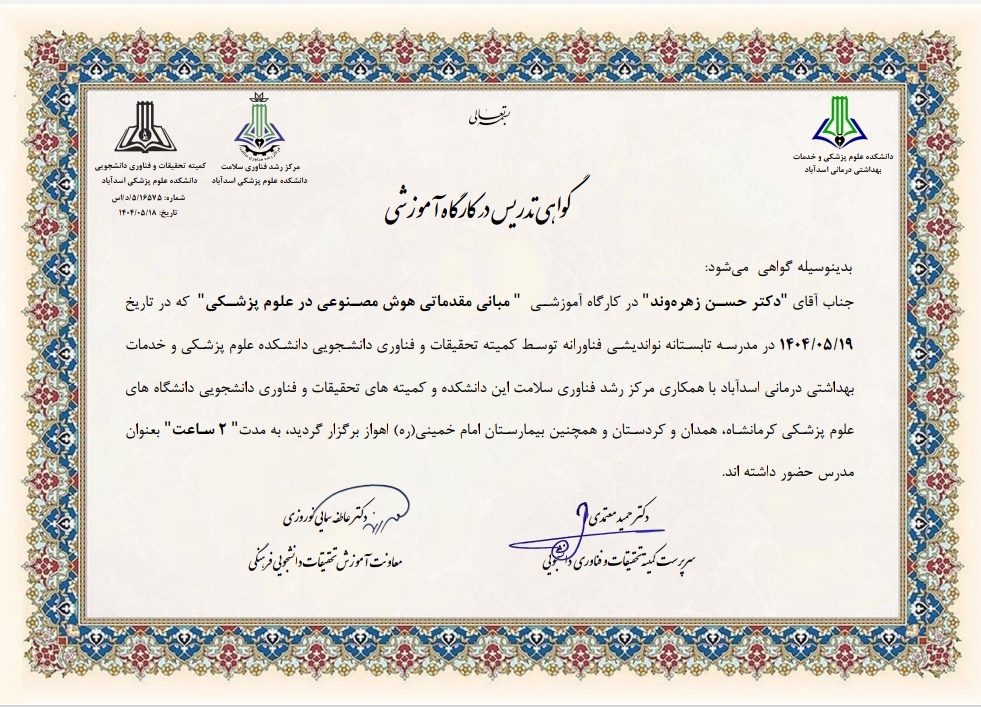 بسمه‌تعالی
دانشکده علوم پزشکی و خدمات
بهداشتی درمانی اسدآباد
مرکز رشد فناوری سلامت
دانشکده علوم پزشکی اسدآباد
کمیته تحقیقات و فناوری دانشجویی
دانشکده علوم پزشکی اسدآباد
شماره: ۵/۱۶۵۷۵/د/اس
تاریخ: ۱۴۰۴/۰۵/۱۸
گواهی تدریس در کارگاه آموزشی
بدینوسیله گواهی می‌شود:
جناب آقای "دکتر حسن زهره‌وند" در کارگاه آموزشی "مبانی مقدماتی هوش مصنوعی در علوم پزشکی" که در تاریخ
۱۴۰۴/۰۵/۱۹ در مدرسه تابستانه نواندیشی فناورانه توسط کمیته تحقیقات و فناوری دانشجویی دانشکده علوم پزشکی و خدمات
بهداشتی درمانی اسدآباد با همکاری مرکز رشد فناوری سلامت این دانشکده و کمیته های تحقیقات و فناوری دانشجویی دانشگاه های
علوم پزشکی کرمانشاه، همدان و کردستان و همچنین بیمارستان امام خمینی(ره) اهواز برگزار گردید، به مدت" ۲ ساعت" بعنوان
مدرس حضور داشته اند.
دکتر حمید معتمدی
سرپرست کمیته تحقیقات و فناوری دانشجویی
دکتر عاطفه نوروزی
معاونت آموزش تحقیقات دانشجویی فرهنگی